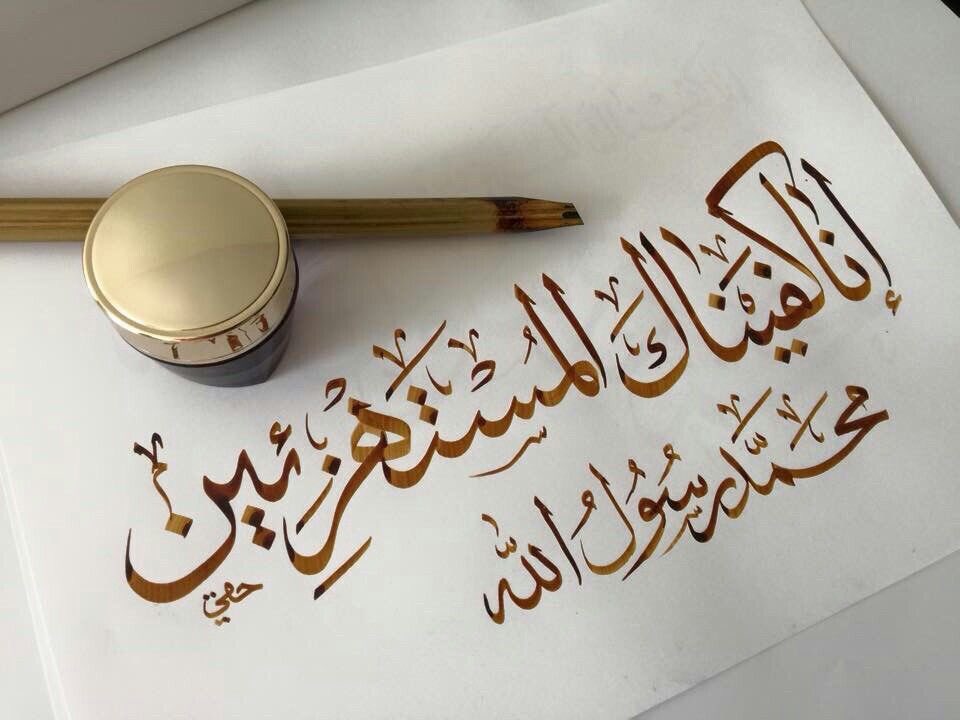 إنا كفيناك المستهزئين
محمد رسول الله